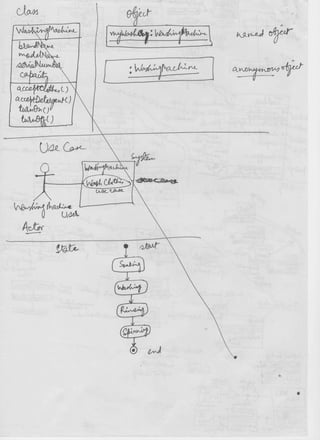 Class
WashingMachine
brandName
modelName
serialNumber
capacity
acceptClothes()
acceptDetergent()
turnOn()
turnOff()
Object
: WashingMachine
named object
: WashingMachine
anonymous object
Use Case
System
WashingMachine
Wash Clothes
use case
WashingMachine
User
Actor
State
start
Soaking
Washing
Rinsing
Spinning
end